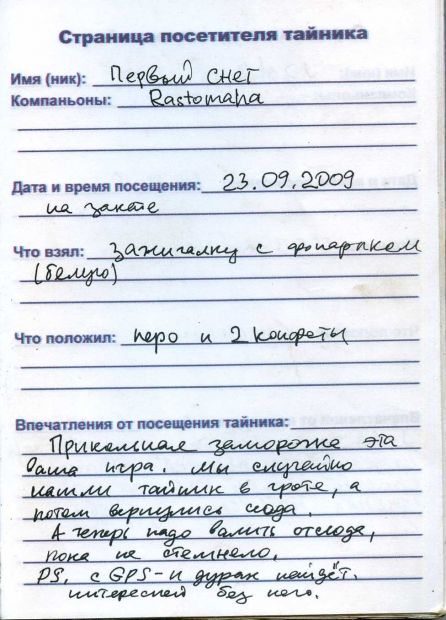 Страница посетителя тайника
Имя (ник): Первый снег
Компаньоны: Rastomaна
Дата и время посещения: 23.09.2009
на закате
Что взял: Зажигалку с фонариком
(белую)
Что положил: перо и 2 конфеты
Впечатления от посещения тайника:
Прикольная заморожка эта
ваша игра. Мы случайно
нашли тайник в гроте, а
потом вернулись сюда.
А теперь надо валить отсюда,
пока не стемнело.
PS. с GPS-й дурак найдёт.
интересней без него.